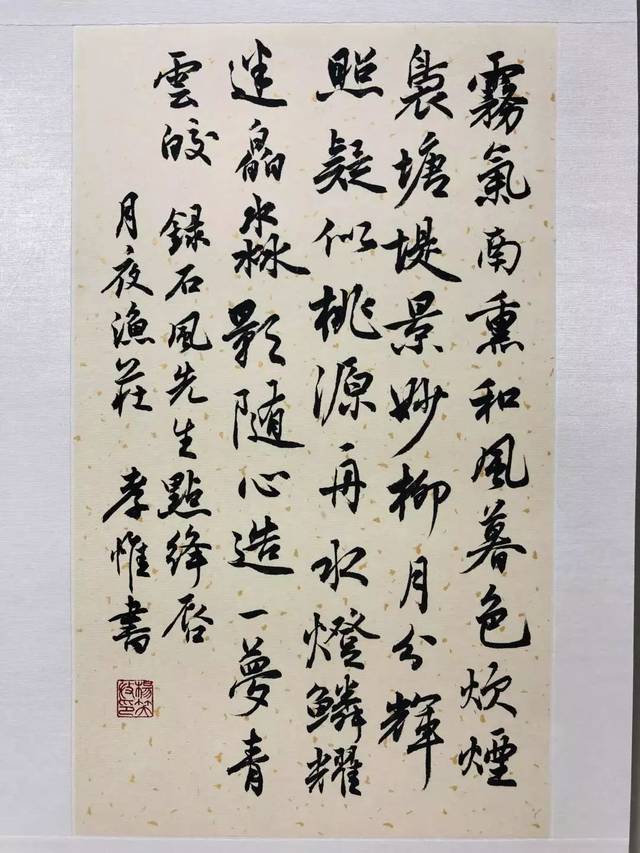 霧氣南熏和風暮色炊煙
裊塘堤景妙柳月分輝
照疑似桃源舟水燈鱗耀
迷皛淼影隨心造一夢青
雲皎 録石風先生點絳唇
月夜漁莊 孝惟書